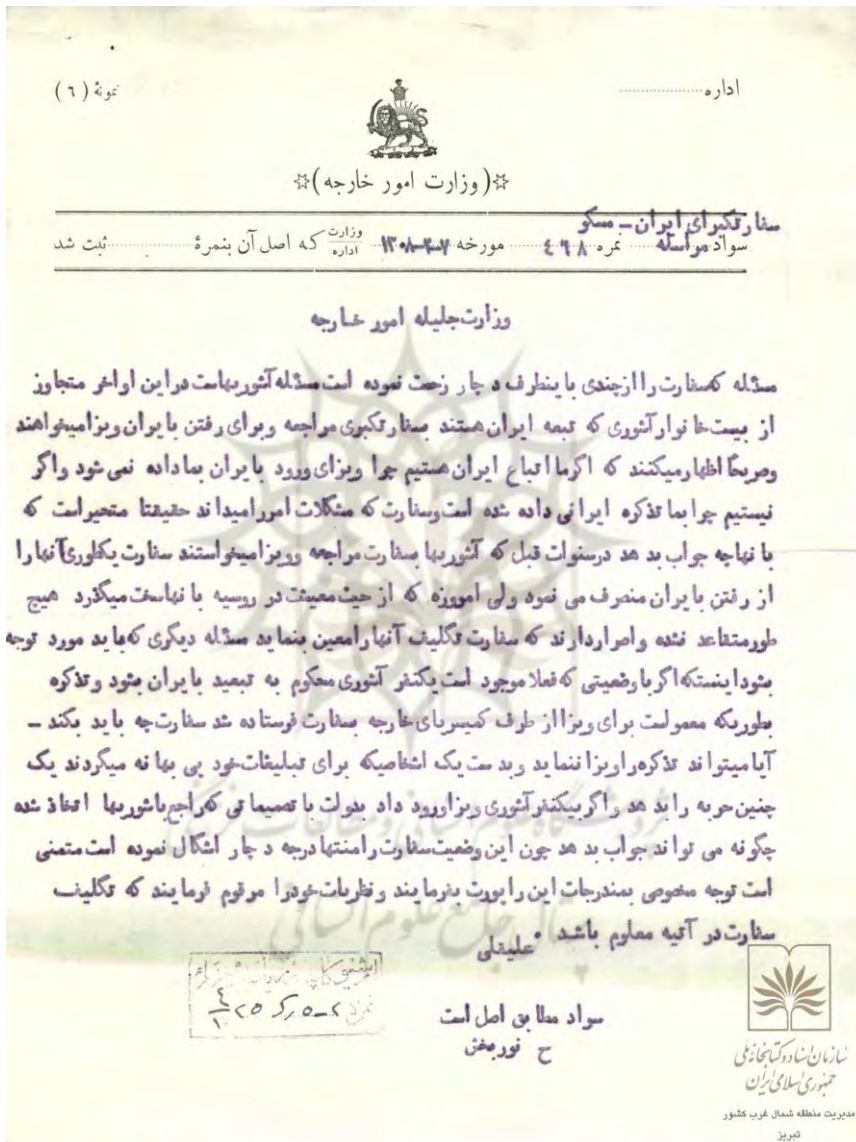 نمونهٔ ( ٦ )
اداره
(وزارت امور خارجه)
سفارتکبرای ایران – مسکو
سواد مراسله نمره ٤٦٨ مورخه وزارت اداره که اصل آن بنمرهٔ ثبت شد
وزارت جلیله امور خارجه
مسئله که سفارت را از چندی باینطرف دچار زحمت نموده است مسئله آشوریهاست در این اواخر متجاوز
از بیست خانوار آشوری که تبعه ایران هستند بسفارتکبری مراجعه و برای رفتن بایران ویزا میخواهند
و صریحاً اظهار میکنند که اگر ما اتباع ایران هستیم چرا ویزای ورود بایران بما داده نمی شود و اگر
نیستیم چرا بما تذکره ایرانی داده شده است و سفارت که مشکلات امور را میداند حقیقتا متحیر است که
بانها چه جواب بدهد در سنوات قبل که آشوریها بسفارت مراجعه و ویزا میخواستند سفارت یکطوری آنها را
از رفتن بایران منصرف می نمود ولی امروزه که از حیث معیشت در روسیه بانها سخت میگذرد هیچ
طور متقاعد نشده و اصرار دارند که سفارت تکلیف آنها را معین بنماید مسئله دیگری که باید مورد توجه
بشود اینستکه اگر با وضعیتی که فعلا موجود است یکنفر آشوری محکوم به تبعید بایران بشود و تذکره
بطوریکه معمولست برای ویزا از طرف کمیسریای خارجه بسفارت فرستاده شد سفارت چه باید بکند –
آیا میتواند تذکره را ویزا ننماید و بدست یک اشخاصیکه برای تبلیغات خود پی بهانه میگردند یک
چنین حربه را بدهد و اگر بیکنفر آشوری ویزا ورود داد بدولت با تصمیماتی که راجع باشوریها اتخاذ شده
چگونه می تواند جواب بدهد چون این وضعیت سفارت را منتها درجه دچار اشکال نموده است متمنی
است توجه مخصوصی بمندرجات این راپورت بفرمایند و نظریات خود را مرقوم فرمایند که تکلیف
سفارت در آتیه معلوم باشد علیقلی
سواد مطابق اصل است
ح نوربخش
پژوهشگاه علوم انسانی و مطالعات فرهنگی
پرتال جامع علوم انسانی
سازمان اسناد و کتابخانه ملی
جمهوری اسلامی ایران
مدیریت منطقه شمال غرب کشور
تبریز